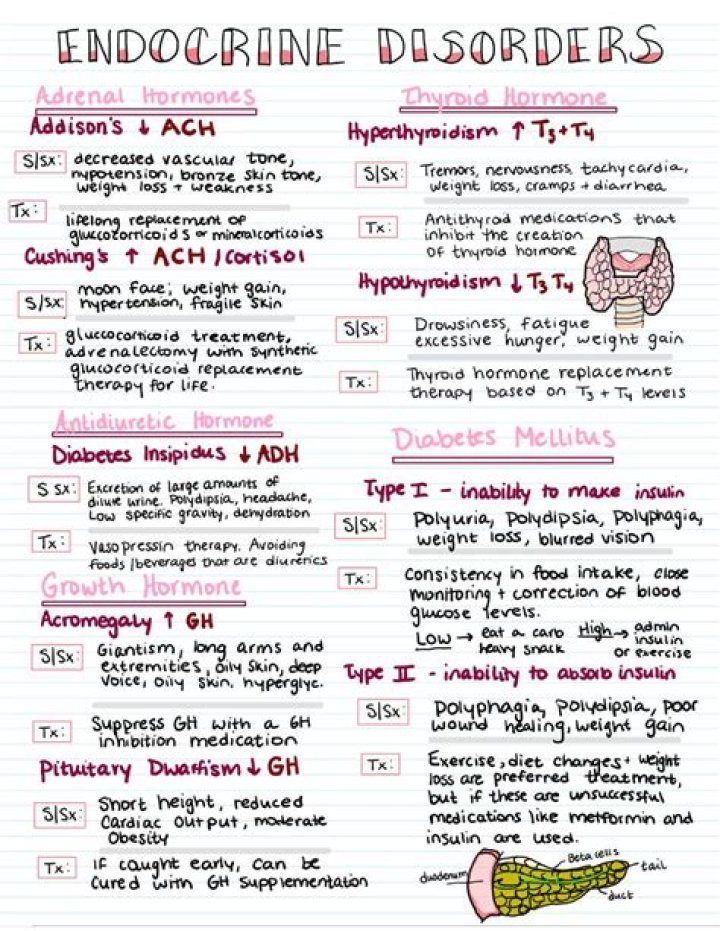 ENDOCRINE DISORDERS
Adrenal Hormones
Addison's ↓ ACH
S|Sx: decreased vascular tone,
hypotension, bronze skin tone,
weight loss + weakness
Tx:
lifelong replacement of
gluccocorricoids or mineralcorticoids
Cushing's ↑ ACH / Cortisol
S/Sx: moon face, weight gain,
hypertension, fragile skin
Tx: gluccocorticoid treatment,
adrenalectomy with synthetic
glucocorticoid replacement
therapy for life.
Antidiuretic Hormone
Diabetes Insipidus ↓ ADH
S Sx: Excretion of large amounts of
dilute urine. Polydipsia, headache,
Low specific gravity, dehydration
Tx: Vasopressin therapy. Avoiding
foods/beverages that are diuretics
Growth Hormone
Acromegaly ↑ GH
S|Sx: Giantism, long arms and
extremities, oily skin, deep
voice, oily skin, hyperglyc.
Tx: Suppress GH with a GH
inhibition medication
Pituitary Dwarfism ↓ GH
S|Sx: Short height, reduced
Cardiac output, moderate
Obesity
Tx: If caught early, can be
cured with GH supplementation
Thyroid Hormone
Hyperthyroidism ↑ T3+T4
S|Sx: Tremors, nervousness, tachycardia,
weight loss, cramps + diarrhea
Tx: Antithyrod medications that
inhibit the creation
of thyroid hormone
Hypothyroidism ↓ T3 T4
S|Sx: Drowsiness, fatigue
excessive hunger, weight gain
Tx: Thyroid hormone replacement
therapy based on T3 + T4 levels
Diabetes Mellitus
Type I - inability to make insulin
S|Sx: Polyuria, Polydipsia, Polyphagia,
weight loss, blurred vision
Tx: Consistency in food intake, close
monitoring + correction of blood
glucose levels.
Low → eat a carb heavy snack
High → admin insulin or exercise
Type II - inability to absorb insulin
S|Sx: Polyphagia, polydipsia, poor
wound healing, weight gain
Tx: Exercise, diet changes + weight
loss are preferred treatment,
but if these are unsuccessful
medications like metformin and
insulin are used.
Beta cells
tail
duodenum
duct